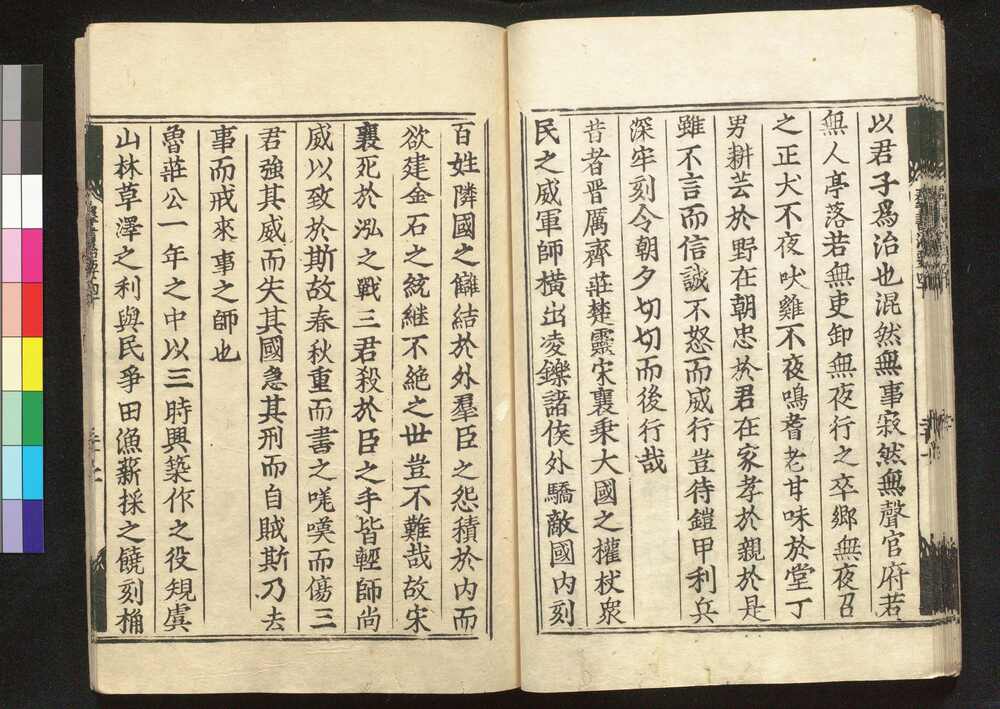 以君子爲治也混然無事寂然無聲官府若
無人亭落若無吏卸無夜行之卒鄉無夜召
之正犬不夜吠雞不夜鳴耆老甘味於堂丁
男耕芸於野在朝忠於君在家孝於親於是
雖不言而信誠不怒而威行豈待鎧甲利兵
深牢刻令朝夕切切而後行哉
昔者晋厲齊莊楚靈宋襄乗大國之權杖衆
民之威軍師橫出凌鑠諸侯外驕敵國内刻
百姓隣國之讎結於外羣臣之怨積於内而
欲建金石之統継不絶之世豈不難哉故宋
襄死於泓之戰三君殺於臣之手皆輕師尚
威以致於斯故春秋重而書之嗟嘆而傷三
君強其威而失其國急其刑而自賊斯乃去
事而戒來事之師也
魯莊公一年之中以三時興築作之役規虞
山林草澤之利與民爭田漁薪採之饒刻桷